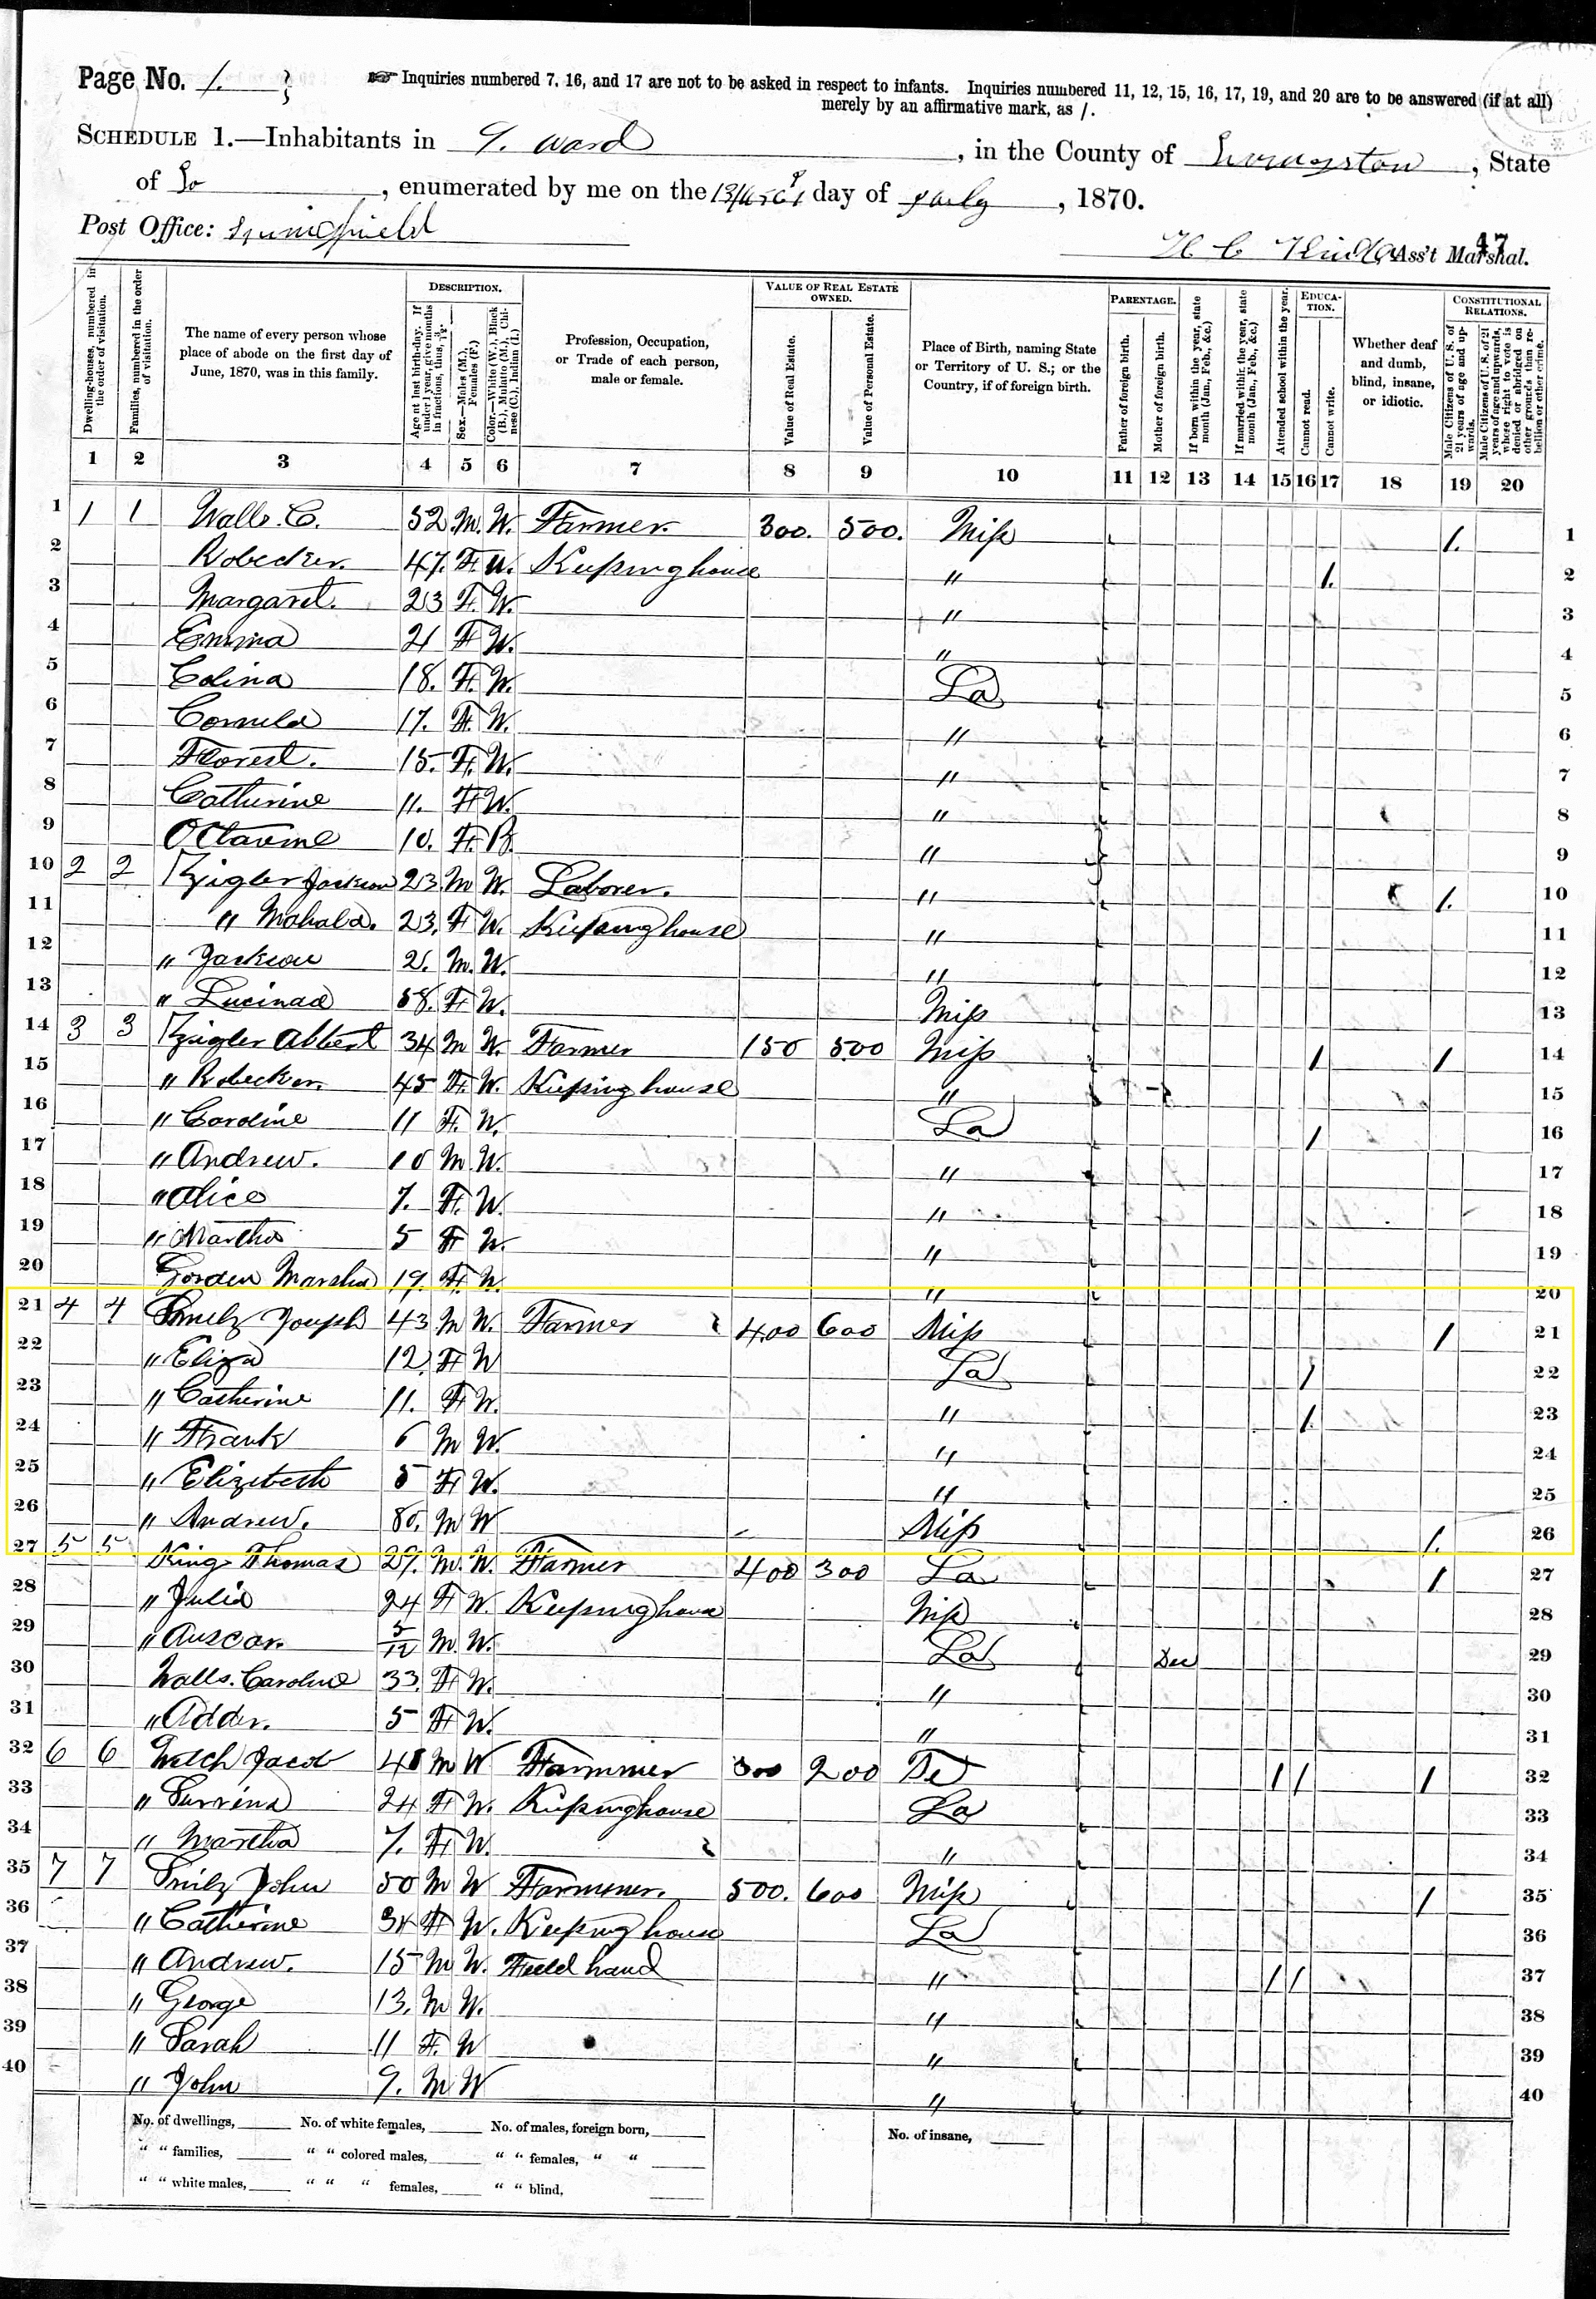 Page No. 1.
☞ Inquiries numbered 7, 16, and 17 are not to be asked in respect to infants. Inquiries numbered 11, 12, 15, 16, 17, 19, and 20 are to be answered (if at all)
merely by an affirmative mark, as /.
SCHEDULE 1.—Inhabitants in 9. Ward, in the County of Livingston, State
of La, enumerated by me on the day of July, 1870.
Post Office: Springfield
47
H C Ass't Marshal.
Dwelling-houses, numbered in the order of visitation.
Families, numbered in the order of visitation.
The name of every person whose place of abode on the first day of June, 1870, was in this family.
DESCRIPTION.
Age at last birth-day. If under 1 year, give months in fractions, thus, 3/12.
Sex.—Males (M.), Females (F.)
Color.—White (W.), Black (B.), Mulatto (M.), Chinese (C.), Indian (I.)
Profession, Occupation, or Trade of each person, male or female.
VALUE OF REAL ESTATE OWNED.
Value of Real Estate.
Value of Personal Estate.
Place of Birth, naming State or Territory of U. S.; or the Country, if of foreign birth.
PARENTAGE.
Father of foreign birth.
Mother of foreign birth.
If born within the year, state month (Jan., Feb., &c.)
If married within the year, state month (Jan., Feb., &c.)
Attended school within the year.
EDUCATION.
Cannot read.
Cannot write.
Whether deaf and dumb, blind, insane, or idiotic.
CONSTITUTIONAL RELATIONS.
Male Citizens of U. S. of 21 years of age and upwards.
Male Citizens of U. S. of 21 years of age and upwards, whose right to vote is denied or abridged on other grounds than rebellion or other crime.
1 2 3 4 5 6 7 8 9 10 11 12 13 14 15 16 17 18 19 20
1 1 1 Walls. C. 52. M. W. Farmer. 300. 500. Miss 1. 1
2 Robecker. 47. F. W. Keepinghouse " 1. 2
3 Margaret. 23 F. W. " 3
4 Emma 21 F W. " 4
5 Colina 18. F. W. La 5
6 Cornela 17. F. W. " 6
7 Florest. 15. F. W. " 7
8 Catherine 11. F W. " 8
9 Octavine 10. F. B. " 9
10 2 2 Kzigler Jackson 23. M W. Laborer. " 1. 10
11 " Mahala. 23. F W. Keepinghouse " 11
12 " Jackson 2. M. W. " 12
13 " Lucinda 58. F W. Miss 13
14 3 3 Kzigler Albert 34 M W. Farmer 150 500 Miss 1 1 14
15 " Robecker. 45 F. W. Keeping house " 15
16 " Caroline 11 F. W. La 1 16
17 " Andrew. 10 M. W. " 17
18 " Alice 7. F. W. " 18
19 " Martha 5 F W. " 19
20 Gorden Marsha 19. F. W. " 20
21 4 4 Joseph 43 M W. Farmer 400 600 Miss 1 21
22 " Eliza 12. F W La 1 22
23 " Catherine 11. F W. " 1. 23
24 " Frank 6 M W. " 24
25 " Elizebeth 5 F W. " 25
26 " Andrew. 80. M W Miss 1. 26
27 5 5 King Thomas 27. M. W. Farmer 400 300 La 1 27
28 " Julia 24 F W. Keepinghouse Miss 28
29 " Auscar. 5/12 M. W. La Dec 29
30 Walls. Caroline 33. F W. " 30
31 " Adder. 5 F W. " 31
32 6 6 Welch Jacob 48 M W Farmmer 300 200 1 1 1 32
33 " 24 F W. Keepinghouse La 33
34 " Martha 7. F W. " 34
35 7 7 John 50 M W Farmmer. 500. 600 Miss 1 35
36 " Catherine 34 F W. Keeping house La 36
37 " Andrew. 15 M W. Field hand " 1 1 37
38 " George 13. M W. " 38
39 " Sarah 11 F. W " 39
40 " John 9. M W " 40
No. of dwellings, No. of white females, No. of males, foreign born, No. of insane,
" " families, " " colored males, " " females, " "
" " white males, " " " females, " " blind,